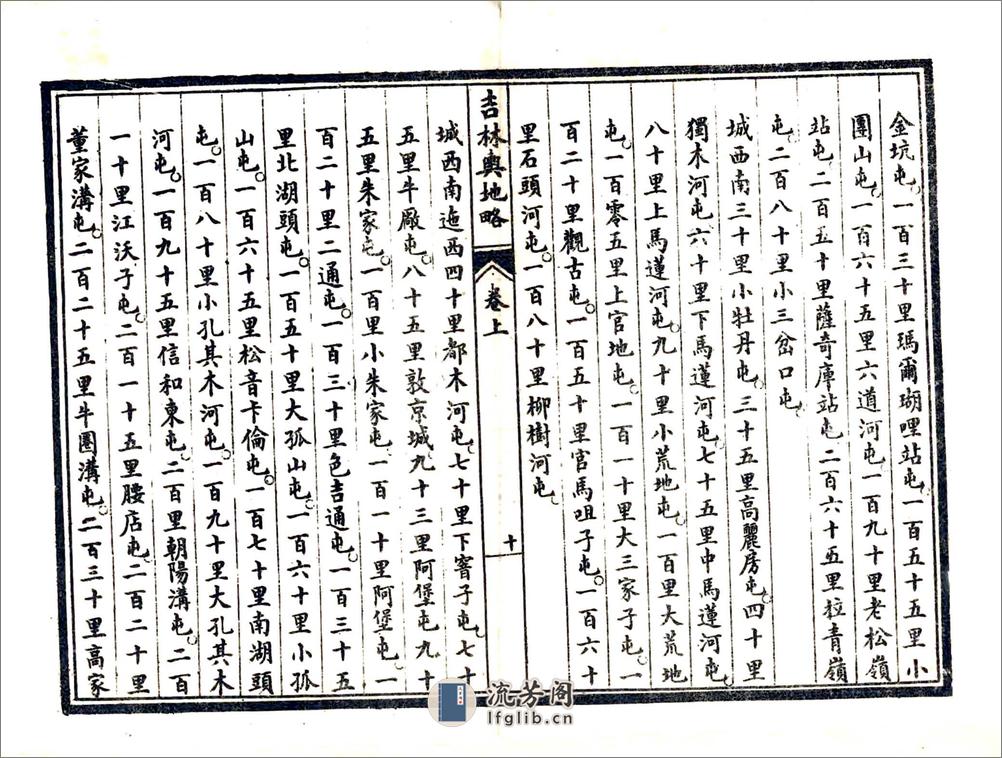 金坑屯一百三十里瑪爾瑚哩站屯一百五十五里小
團山屯一百六十五里六道河屯一百九十里老松嶺
站屯二百五十里薩奇庫站屯二百六十五里拉青嶺
屯二百八十里小三岔口屯
城西南三十里小牡丹屯三十五里高麗房屯四十里
獨木河屯六十里下馬蓮河屯七十五里中馬蓮河屯
八十里上馬蓮河屯九十里小荒地屯一百里大荒地
屯一百零五里上官地屯一百一十里大三家子屯一
百二十里觀古屯一百五十里官馬咀子屯一百六十
里石頭河屯一百八十里柳樹河屯
吉林輿地略
卷上
十
城西南迤西四十里都木河屯七十里下窨子屯七十
五里牛廠屯八十五里敦京城九十三里阿堡屯九十
五里朱家屯一百里小朱家屯一百一十里阿堡屯一
百二十里二通屯一百三十里色吉通屯一百三十五
里北湖頭屯一百五十里大孤山屯一百六十里小孤
山屯一百六十五里松音卡倫屯一百七十里南湖頭
屯一百八十里小孔其木河屯一百九十里大孔其木
河屯一百九十五里信和東屯二百里朝陽溝屯二百
一十里江沃子屯二百一十五里腰店屯二百二十里
董家溝屯二百二十五里牛圈溝屯二百三十里高家
流芳阁
lfglib.cn